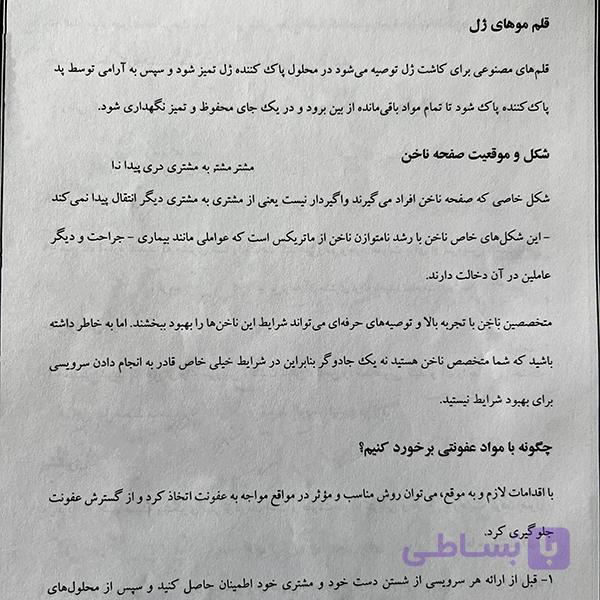 قلم موهای ژل
قلم‌های مصنوعی برای کاشت ژل توصیه می‌شود در محلول پاک کننده ژل تمیز شود و سپس به آرامی توسط پد
پاک‌کننده پاک شود تا تمام مواد باقی‌مانده از بین برود و در یک جای محفوظ و تمیز نگهداری شود.
شکل و موقعیت صفحه ناخن
مشتر مشتر به مشتری دری پیدا ندا
شکل خاصی که صفحه ناخن افراد می‌گیرند واگیردار نیست یعنی از مشتری به مشتری دیگر انتقال پیدا نمی‌کند
– این شکل‌های خاص ناخن با رشد نامتوازن ناخن از ماتریکس است که عواملی مانند بیماری – جراحت و دیگر
عاملین در آن دخالت دارند.
متخصصین ناخن با تجربه بالا و توصیه‌های حرفه‌ای می‌تواند شرایط این ناخن‌ها را بهبود ببخشند. اما به خاطر داشته
باشید که شما متخصص ناخن هستید نه یک جادوگر بنابراین در شرایط خیلی خاص قادر به انجام دادن سرویسی
برای بهبود شرایط نیستید.
چگونه با مواد عفونتی برخورد کنیم؟
با اقدامات لازم و به موقع، می‌توان روش مناسب و مؤثر در مواقع مواجه به عفونت اتخاذ کرد و از گسترش عفونت
جلوگیری کرد.
بساطی
۱- قبل از ارائه هر سرویسی از شستن دست خود و مشتری خود اطمینان حاصل کنید و سپس از محلول‌های